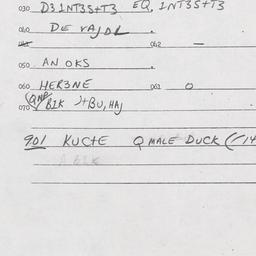 030 D31NT3S+T3 EQ. 1NT3S+T3
040 DE VAJDL .
062 —
050 AN OKS .
060 HER3NE 063 0
070 B2K )+BU, HAJ
901 KUCTE Q MALE DUCK (